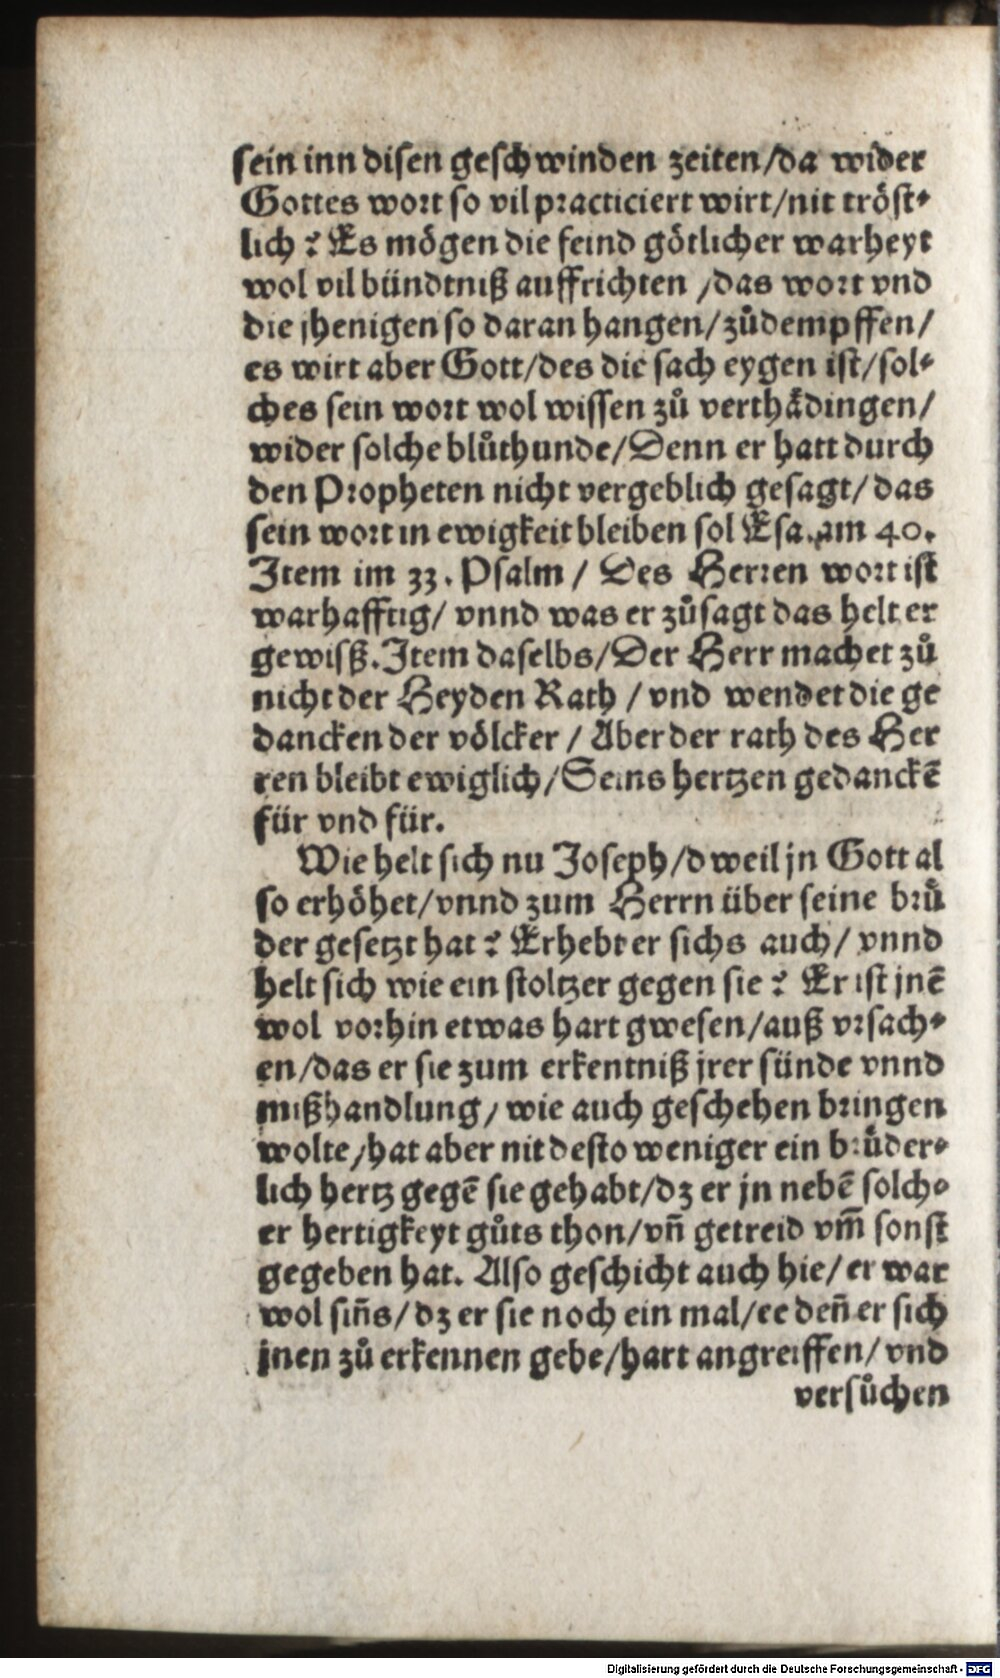 sein inn disen geschwinden zeiten/da wider
Gottes wort so vil practiciert wirt/nit tröst⸗
lich? Es mögen die feind götlicher warheyt
wol vil bündtniß auffrichten /das wort vnd
die jhenigen so daran hangen/zůdempffen/
es wirt aber Gott/des die sach eygen ist/sol⸗
ches sein wort wol wissen zů verthädingen/
wider solche blůthunde/Denn er hatt durch
den Propheten nicht vergeblich gesagt/das
sein wort in ewigkeit bleiben sol Esa. am 40.
Item im 33. Psalm / Des Herren wort ist
warhafftig/ vnnd was er zůsagt das helt er
gewisß. Item daselbs/Der Herr machet zů
nicht der Heyden Rath / vnd wendet die ge
dancken der völcker / Aber der rath des Her
ren bleibt ewiglich/Seins hertzen gedanckē
für vnd für.
Wie helt sich nu Joseph/dweil jn Gott al
so erhöhet/vnnd zum Herrn über seine brů
der gesetzt hat? Erhebt er sichs auch/ vnnd
helt sich wie ein stoltzer gegen sie? Er ist jnē
wol vorhin etwas hart gwesen/auß vrsach⸗
en/das er sie zum erkentniß jrer sünde vnnd
mißhandlung/wie auch geschehen bringen
wolte/hat aber nit desto weniger ein brůder⸗
lich hertz gegē sie gehabt/dz er jn nebē solch⸗
er hertigkeyt gůts thon/vñ getreid vm̃ sonst
gegeben hat. Also geschicht auch hie/er war
wol siñs/dz er sie noch ein mal/ee deñ er sich
jnen zů erkennen gebe/hart angreiffen/vnd
versůchen
Digitalisierung gefördert durch die Deutsche Forschungsgemeinschaft - DFG